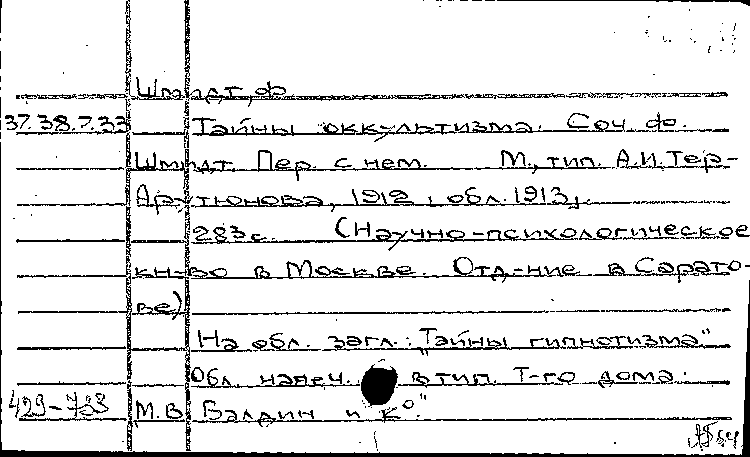 Шмидт, Ф.
37.38.7.33 Тайны оккультизма. Соч. Ф.
Шмидт. Пер. с нем. М., тип. А.И. Тер-
Арутюнова, 1912, обл. 1913].
283с. (Научно-психологическое
кн-во в Москве. Отд-ние в Сарато-
ве)
На обл. загл.: "Тайны гипнотизма"
Обл. напеч. в тип. Т-го дома:
429-733 М.В. Балдин и К°."